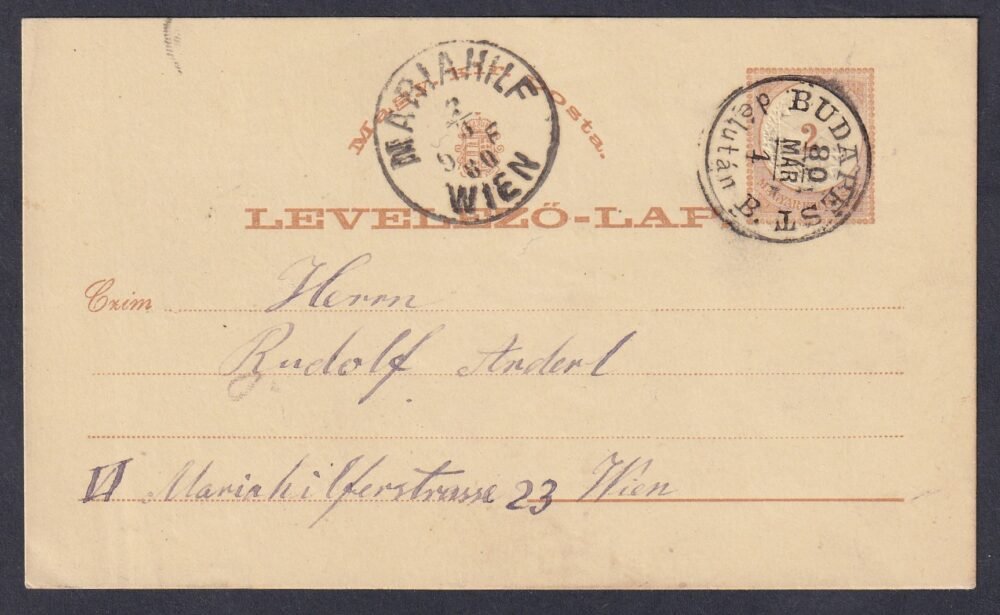 MARIAHILF
WIEN
3
80
Posta.
BUDAPEST
délután
80
MÁR
1
B.
2
MAGYAR
LEVELEZŐ-LAP
Czim
Herrn
Rudolf Anderl
VI Mariahilferstrasse 23 Wien